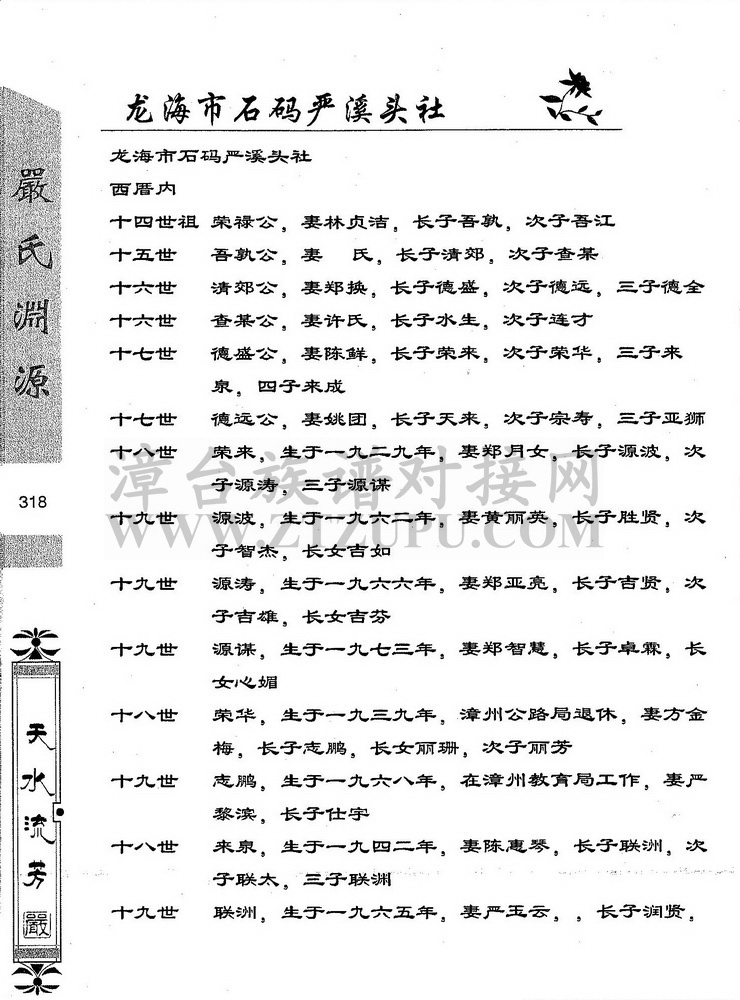 龙海市石码严溪头社
龙海市石码严溪头社
西厝内
十四世祖 荣禄公，妻林贞洁，长子吾孰，次子吾江
十五世 吾孰公，妻 氏，长子清郊，次子查某
十六世 清郊公，妻郑换，长子德盛，次子德远，三子德全
十六世 查某公，妻许氏，长子水生，次子连才
十七世 德盛公，妻陈鲜，长子荣来，次子荣华，三子来
泉，四子来成
十七世 德远公，妻姚团，长子天来，次子宗寿，三子亚狮
十八世 荣来，生于一九二九年，妻郑月女，长子源波，次
子源涛，三子源谋
十九世 源波，生于一九六二年，妻黄丽英，长子胜贤，次
子智杰，长女吉如
十九世 源涛，生于一九六六年，妻郑亚亮，长子吉贤，次
子吉雄，长女吉芬
十九世 源谋，生于一九七三年，妻郑智慧，长子卓霖，长
女心媚
十八世 荣华，生于一九三九年，漳州公路局退休，妻方金
梅，长子志鹏，长女丽珊，次子丽芳
十九世 志鹏，生于一九六八年，在漳州教育局工作，妻严
黎滨，长子仕宇
十八世 来泉，生于一九四二年，妻陈惠琴，长子联洲，次
子联太，三子联渊
十九世 联洲，生于一九六五年，妻严玉云，，长子润贤，
嚴氏淵源
318
天水流芳
嚴
漳台族谱对接网
WWW.ZTZUPU.COM